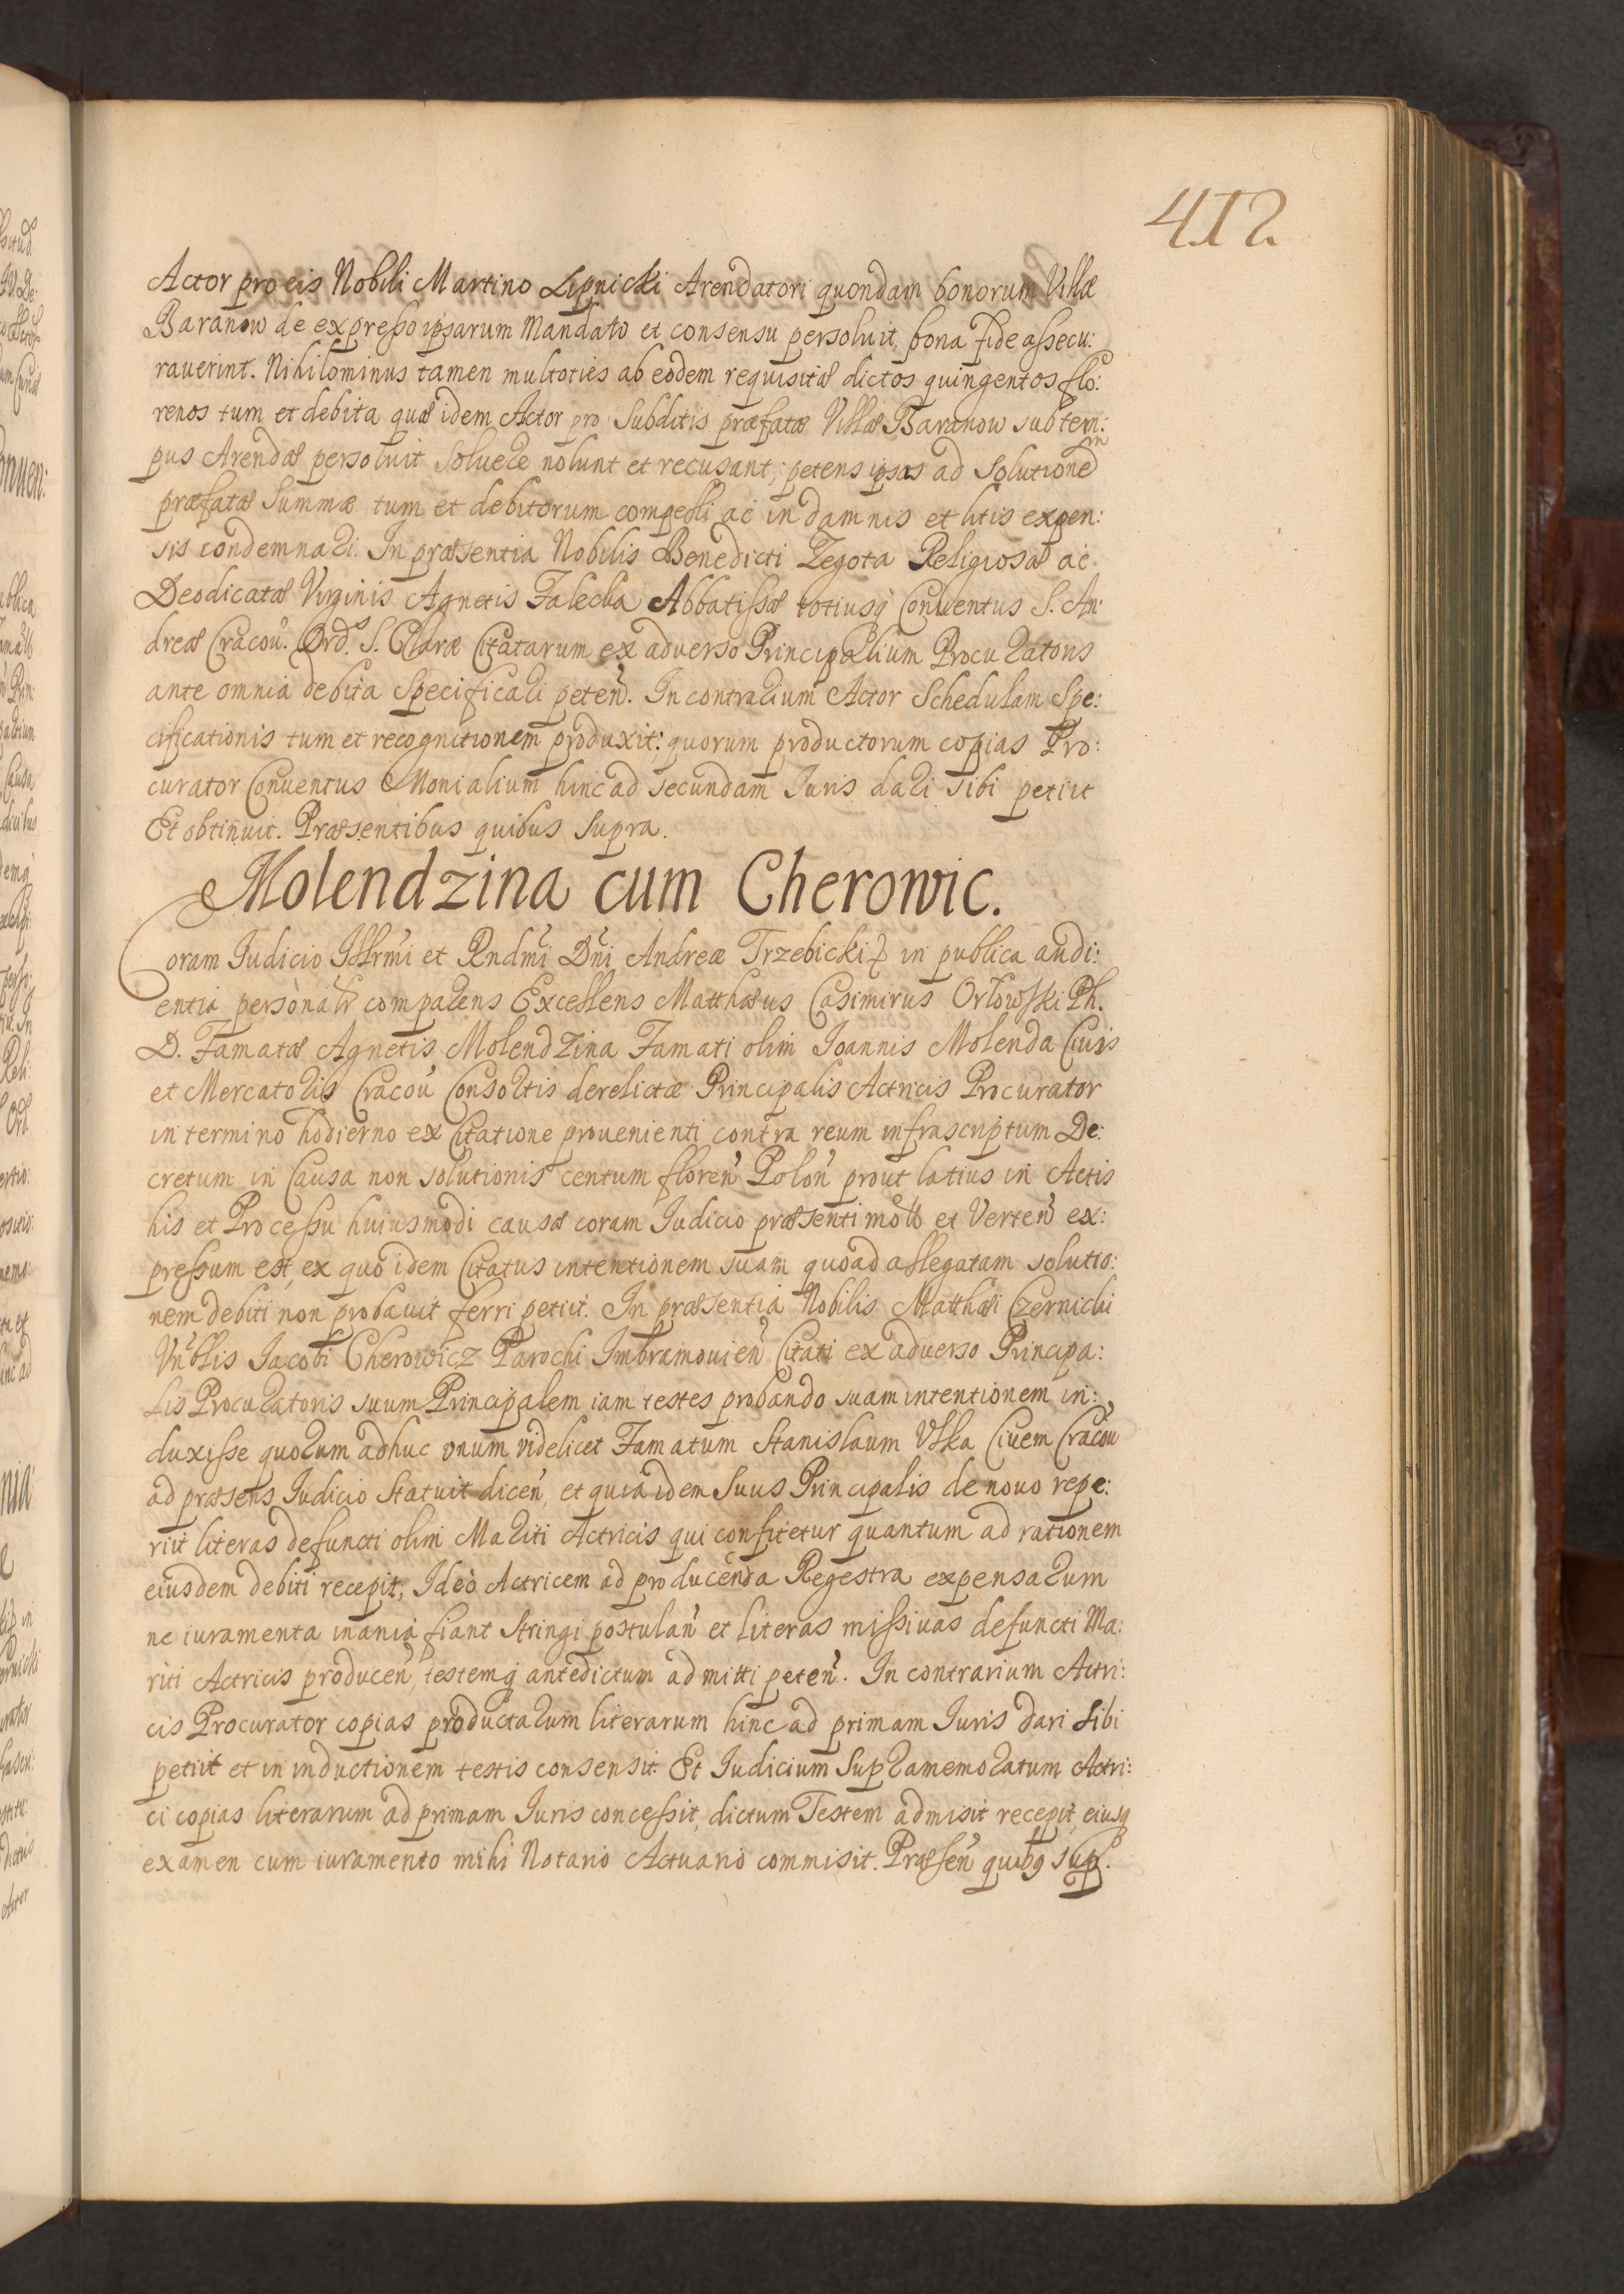 412
Actor pro eis Nobili Martino Lipnicki Arendatori quondam bonorum Villæ
Baranow de expresso ipsarum Mandato et consensu persoluit, bona fide assecu:
rauerint. Nihilominus tamen multoties ab eodem requisitæ dictos quingentos flo:
renos tum et debita quæ idem Actor pro Subditis præfatæ Villæ Baranow sub tem:
pus Arendæ persoluit Soluere nolunt et recusant; petens ipsas ad Solutionem
præfatæ Summæ tum et debitorum compelli ac in damnis et litis expen:
sis condemnari. In præsentia Nobilis Benedicti Zegota Religiosæ ac
Deodicatæ Virginis Agnetis Falecka Abbatissæ totiusq Conuentus S. An:
dreæ Cracou. Ord. S. Claræ Citatarum ex aduerso Principalium Procuratoris
ante omnia debita Specificari peteñ. In contrarium Actor Schedulam Spe:
cificationis tum et recognitionem produxit: quorum productorum copias Pro:
curator Conuentus Monialium hinc ad secundam Iuris dari sibi petiit
Et obtinuit. Præsentibus quibus Supra.
Molendzina cum Cherowic.
Coram Iudicio Illrmi et Rndmi Dni Andreæ Trzebicki in publica audi:
entia personalr comparens Excellens Matthæus Casimirus Orłowski Ph.
D. Famatæ Agnetis Molendzina Famati olim Ioannis Molenda Ciuis
et Mercatoris Cracou Consortis derelictæ Principalis Actricis Procurator
in termino hodierno ex Citatione prouenienti contra reum infrascriptum De:
cretum in Causa non solutionis centum floreñ Poloñ prout latius in Actis
his et Processu huiusmodi causæ coram Iudicio præsenti mott et Verteñ ex:
pressum est, ex quo idem Citatus intentionem suam quoad allegatam solutio:
nem debiti non probauit ferri petiit. In præsentia Nobilis Matthæi Czernicki
Vnblis Iacobi Cherowicz Parochi Imbramouieñ Citati ex aduerso Principa:
lis Procuratoris suum Principalem iam testes probando suam intentionem in:
duxisse quorum adhuc vnum videlicet Famatum Stanislaum Vska Ciuem Cracou
ad præsens Iudicio Statuit diceñ, et quia idem Suus Principalis de nouo repe:
riit literas defuncti olim Mariti Actricis qui confitetur quantum ad rationem
eiusdem debiti recepit; Ideo Actricem ad producenda Regestra expensarum
ne iuramenta inania fiant Stringi postulañ et literas missiuas defuncti Ma:
riti Actricis produceñ, testemq antedictum admitti peteñ. In contrarium Actri:
cis Procurator copias productarum literarum hinc ad primam Iuris dari Sibi
petiit et in inductionem testis consensit. Et Iudicium Supramemoratum Actri:
ci copias literarum ad primam Iuris concessit, dictum Testem admisit recepit, eiusq
examen cum iuramento mihi Notario Actuario commisit. Præseñ quibq sup.